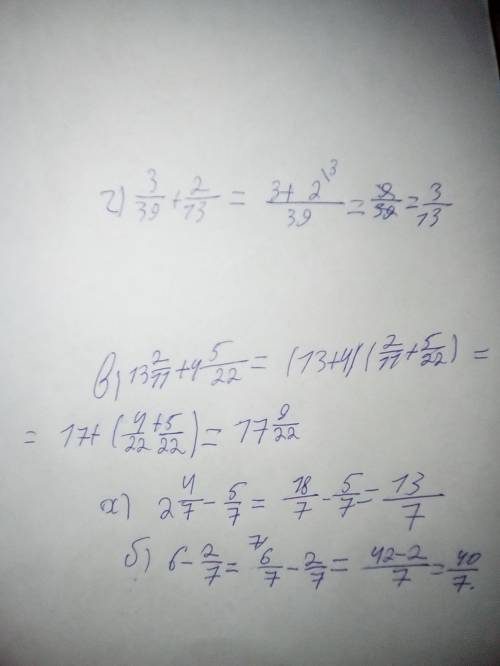 г) 3/39 + 2/13 = 3 + 2\3 / 39 = 9/39 = 3/13
в) 13 2/11 + 4 5/22 = (13+4)(2/11 + 5/22) =
= 17 + (4/22 + 5/22) = 17 9/22
а) 2 4/7 - 5/7 = 18/7 - 5/7 = 13/7
б) 6 - 2/7 = 7/ 6/7 - 2/7 = 42-2/7 = 40/7.